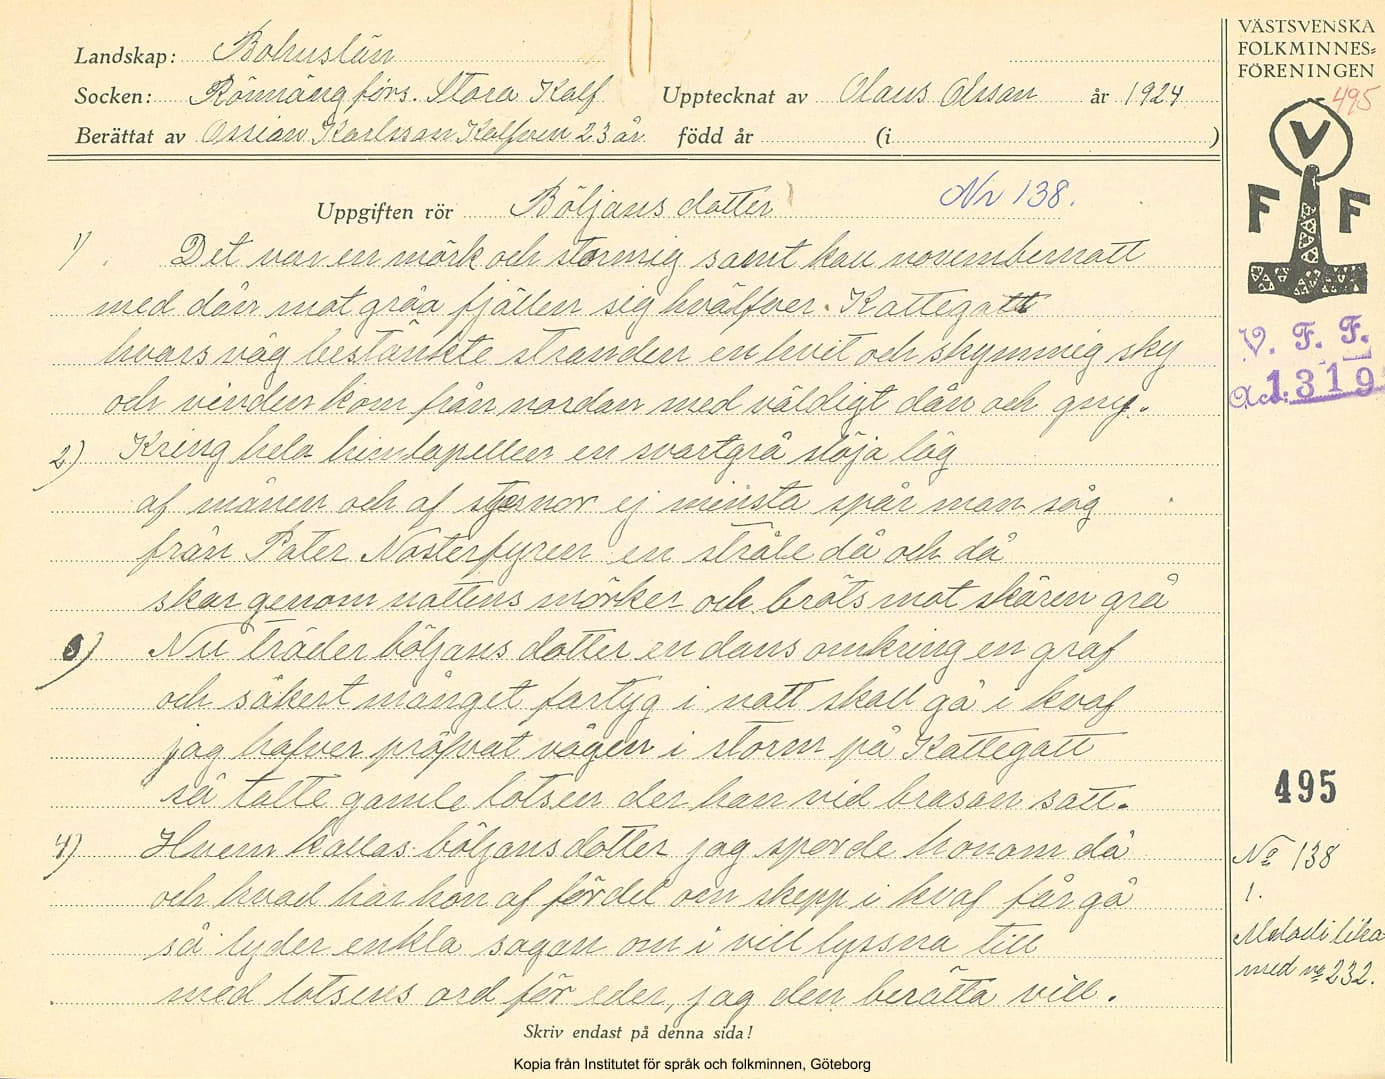 Landskap: Bohuslän
Socken: Rönnäng förs. Stora Kalf Upptecknat av Olaus Olsson år 1924
Berättat av Ossian Karlsson Kalfven 23 år född år (i )
Uppgiften rör Böljans dotter Nr 138.
1) Det var en mörk och stormig samt kall novembernatt
med dån mot gråa fjällen sig hvälfver Kattegatt
hvars våg bestänkte stranden en hvit och skymmig sky
och vinden kom från nordan med väldigt dån och gny.
2) Kring hela himlapellen en svartgrå slöja låg
af månen och af stjernor ej minsta spår man såg
från Pater Nosterfyren en stråle då och då
skar genom nattens mörker och bröts mot skären grå
3) Nu träder böljans dotter en dans omkring en graf
och säkert månget fartyg i natt skall gå i kvaf
jag hafver pröfvat vågen i storm på Kattegatt
så talte gamle lotsen der han vid brasan satt.
4) Hvem kallas böljans dotter jag sporde honom då
och hvad har hon af fördel om skepp i kvaf får gå
så lyder enkla sagan om i vill lyssna till
med lotsens ord för eder, jag den berätta vill.
Skriv endast på denna sida!
Kopia från Institutet för språk och folkminnen, Göteborg
VÄSTSVENSKA
FOLKMINNES=
FÖRENINGEN
495
V
F F
V. F. F.
Acc: 1319
495
No 138
1.
Melodi lika
med no 232.